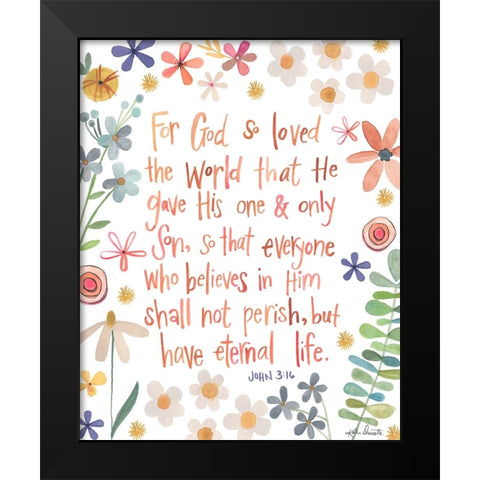 For God so loved
the World that He
gave His one & only
Son, so that everyone
who believes in Him
shall not perish, but
have eternal life.
JOHN 3:16